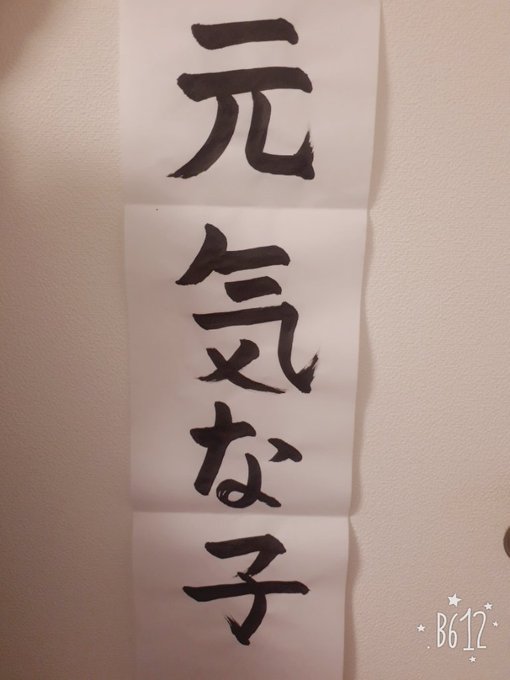 元気な子
B612